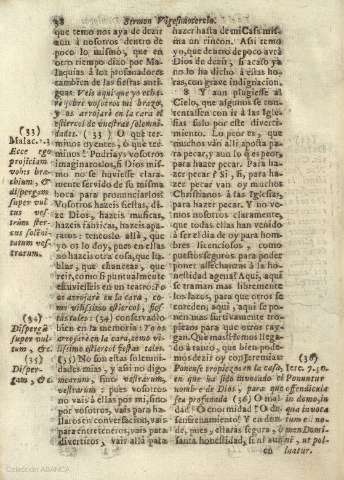 98 Sermon Vigesimotercio.
que temo nos aya de dezir
aun à nosotros dentro de
poco lo mismo, que en
otro tiempo dixo por Ma-
laquias à los profanadores
tambien de las fiestas anti-
guas. Veis aqui que yo echa-
rè sobre vosotros mi brazo,
y os arrojarè en la cara el
estiercol de vuestras solemni-
dades. (33) O què ter-
minos oyentes, ò que ter-
minos! Podriays vosotros
imaginarlos, si Dios mis-
mo no se huviesse clara-
mente servido de su misma
boca para pronunciarlos?
Vosotros hazeis fiestas, di-
ze Dios, hazeis musicas,
hazeis
ratos: teneoslo allà, que
yo os lo doy, pues en ellas
no hazeis otra cosa, que ha-
blar, que chancear, que
reir, como si puntualmente
estuviesseis en un teatro: Yo
os arrojarè en la cara, co-
mo vilissimo estiercol, fies-
tas tales: (34) conservadlo
bien en la memoria: Yo os
arrojarè en la cara, como vi-
lissimo estiercol fiestas tales.
(35) No son estas solemni-
dades mias, y assi no digo
mearum, sinò vestrarum,
vestrarum: pues vosotros
no vais à ellas por mi, sino
por vosotros, vais para ha-
llaros en conversacion, vais
para entreteneros, vais para
divertiros, vais allà para
(33)
Malac. 2. 3
Ecce ego
projiciam
vobis bra-
chium, &
dispergam
super vul-
tus ves-
trum ster-
cus solem-
nitatum ves-
trarum.
(34)
Dispergam
super vul-
tum, &c.
(35)
Disper-
gam, &c.
hazer hasta de mi Casa mis-
ma un rincon. Assi temo
yo, que de aqui de poco avrà
Dios de dezir, si acaso ya
no lo ha dicho à estas ho-
ras, con grave indignacion.
8 Y aun pluguiesse al
Cielo, que algunos se con-
tentassen con ir à las Igle-
sias solo por este diverti-
miento. Lo peor es, que
muchos van allì aposta pa-
ra pecar, y aun lo que es peor,
para hazer pecar. Para ha-
zer pecar? Si, si, para ha-
zer pecar van oy muchos
Christianos à las Iglesias,
para hazer pecar. Y no ve-
mos nosotros claramente,
que todas ellas han venido
à ser el dia de oy para hom-
bres licenciosos, como
puestos seguros para poder
poner assechanças à la ho-
nestidad agena? Aqui, aqui
se traman mas libremente
los lazos, para que otros se
enreden aqui, aqui se po-
nen mas furtivamente tro-
piezos para que otros cay-
gan. Que mas? Hemos llega-
do à tanto, que bien pode-
mos dezir oy con Jeremias:
Ponense tropiezos en la casa,
en que ha sido invocado el
nombre de Dios, para que
sea profanada (36) O mal-
dad! O enormidad! O de-
senfrenamiento! Y en don-
de, pues, estarà segura, ò
santa honestidad, si ni aun
en
(36)
Jere. 7. 30.
Posuerunt
offendicula
in domo, in
qua invoca-
tum est no-
men Domi-
ni, ut pol-
luatur.
Colección ABANCA